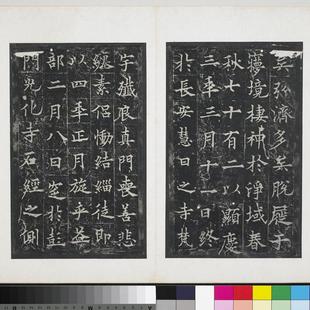 矣弘濟多矣脫屣于
夢境棲神於淨域春
秋七十有二以顯慶
三年三月十一日終
於長安慧日之寺梵
宇殲良真門喪善悲
纏素侶慟結緇徒即
以四年正月旋乎益
部二月八日窆於彭
門光化寺石經之側